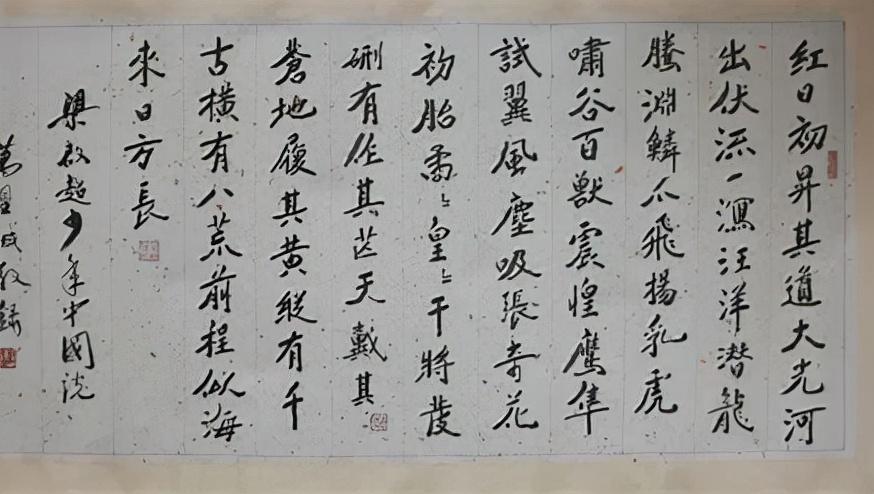 红日初昇其道大光河
出伏流一瀉汪洋潜龍
騰淵鳞爪飛揚乳虎
嘯谷百獸震惶鷹隼
試翼風塵吸張奇花
初胎矞〻皇〻干將發
硎有作其芒天戴其
蒼地履其黄縱有千
古横有八荒前程似海
來日方長
梁啟超少年中國说
萬 録